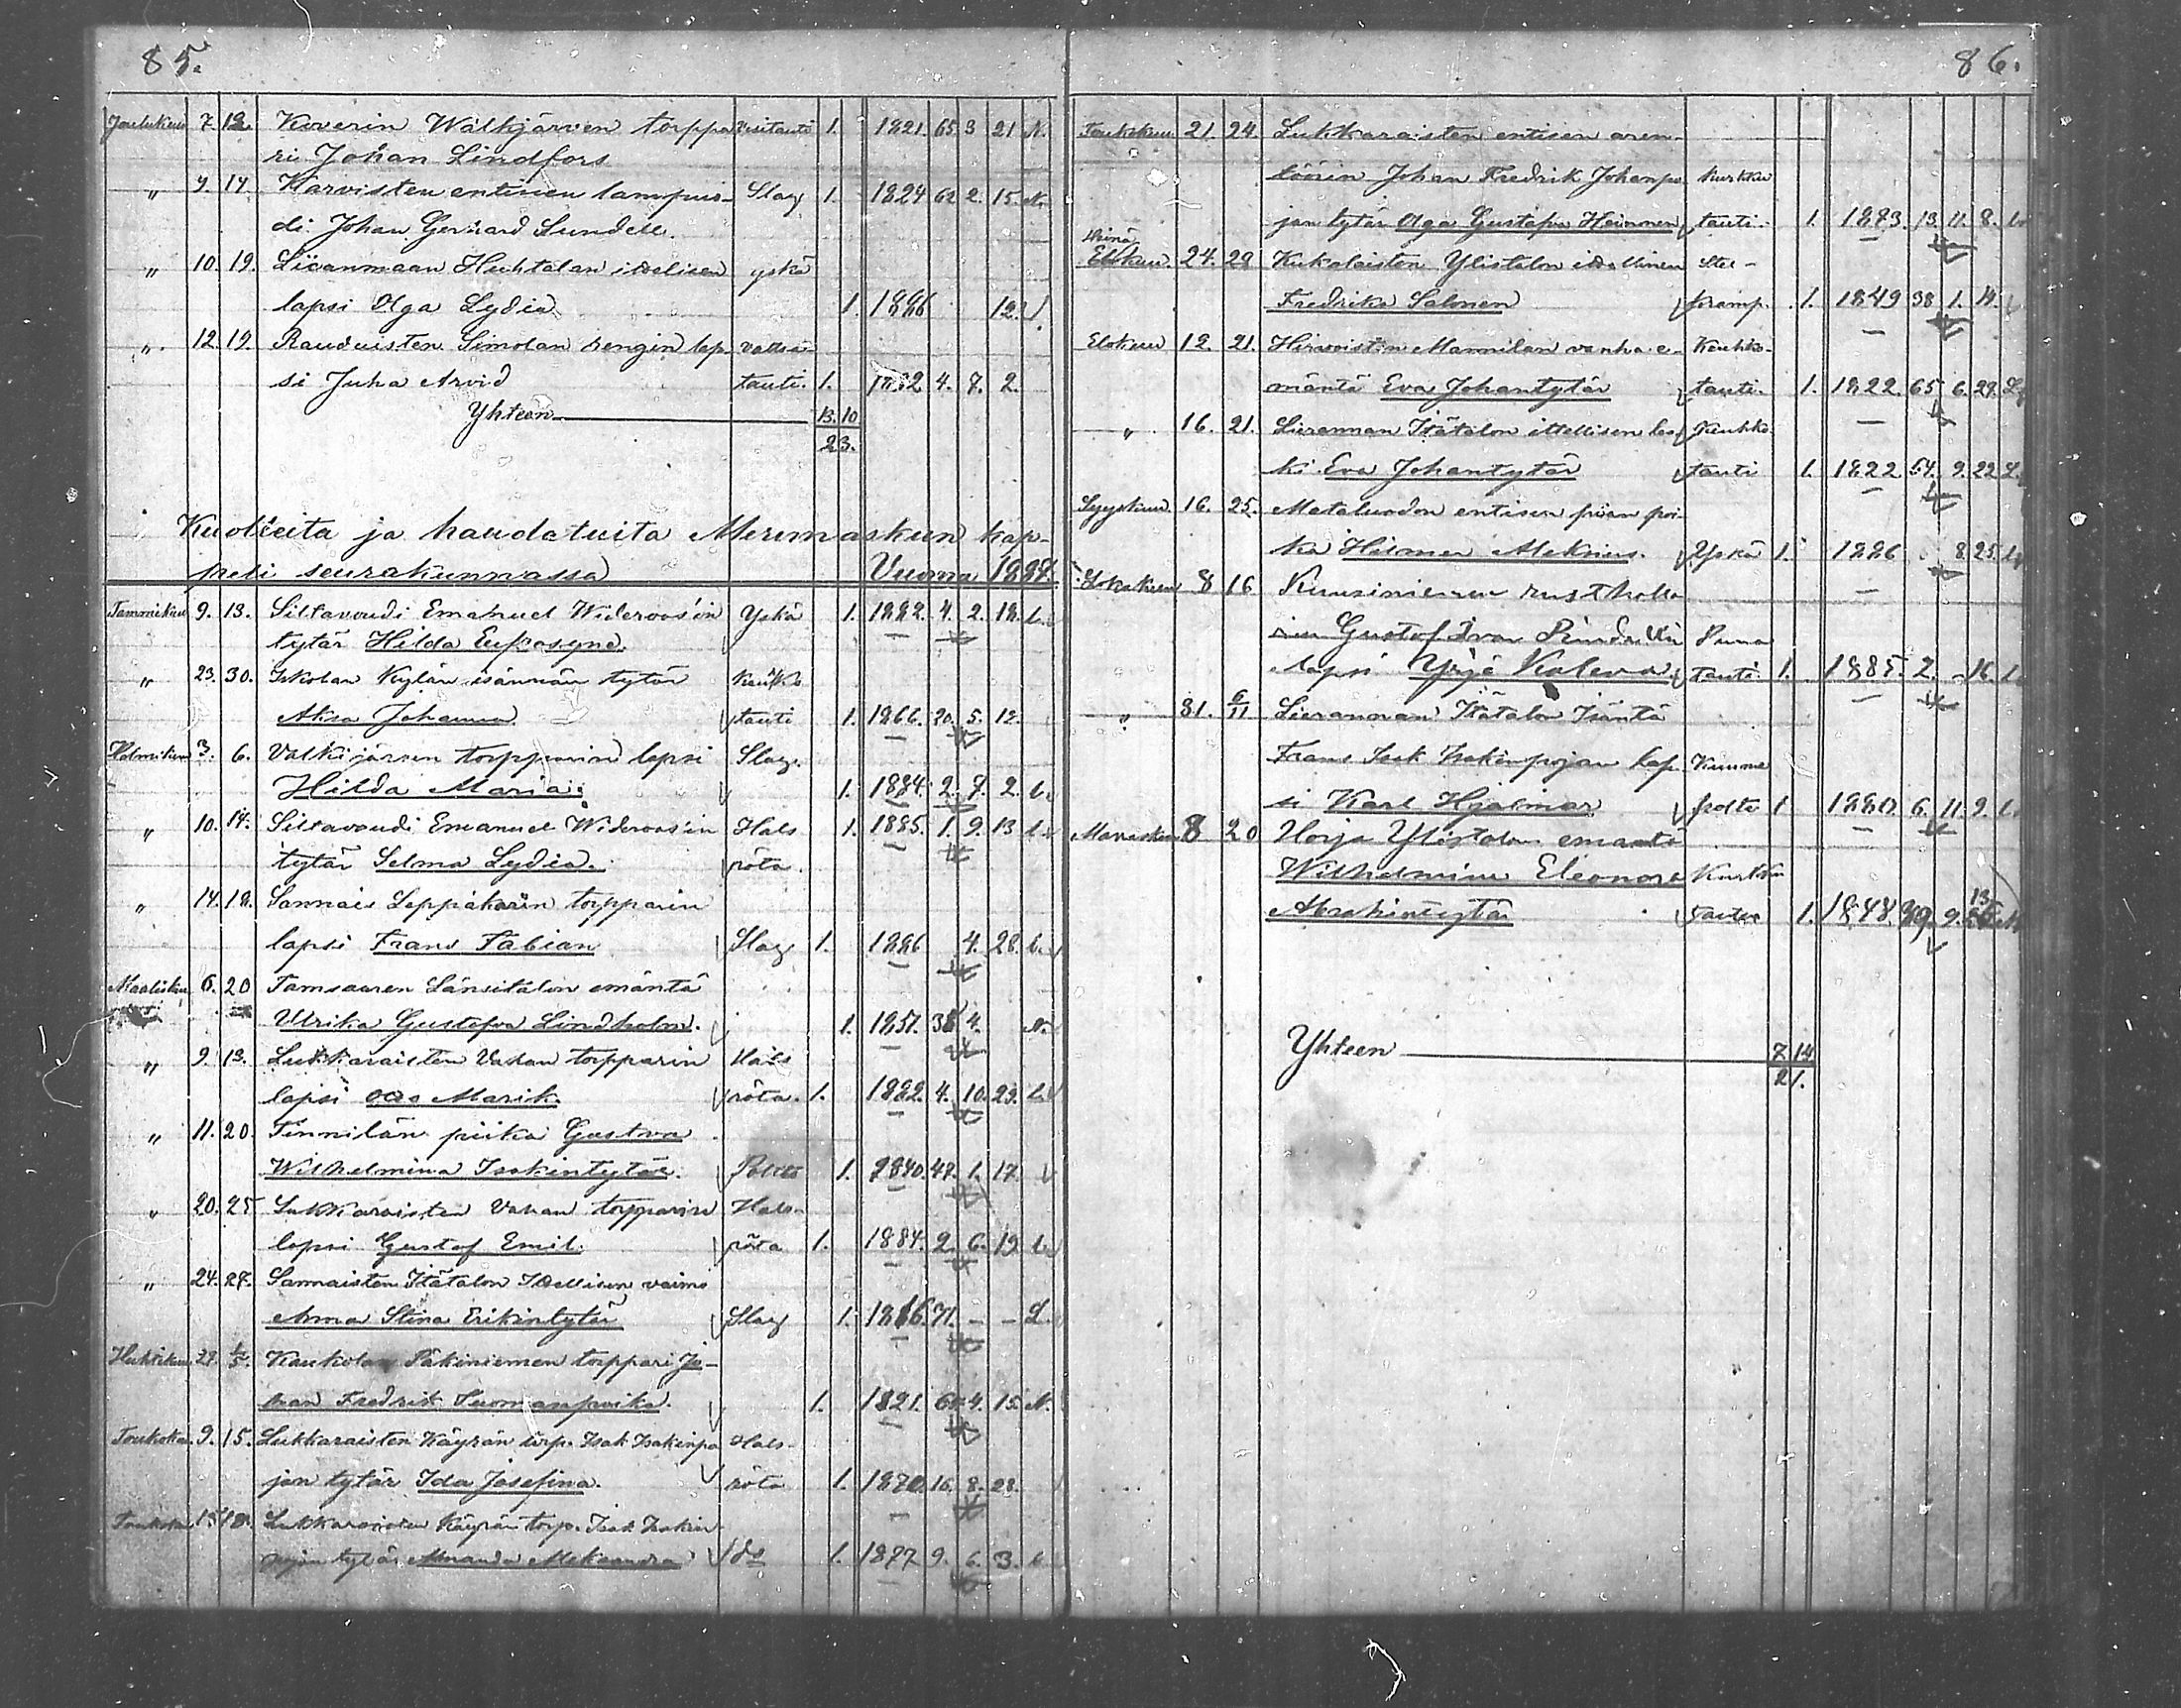 85.
Joulukuu 7. 12. Kuverin Walkjärven torppa- Vesitauti 1. 1821. 65. 3 21 N.
ri Johan Lindfors
" 9 14 Karvisten entinen lampuo- Slag 1. 1824 62 2. 15. N.
di Johan Gerhard Sundell.
" 10. 19. Lieranmaan Huhtalan itsellisen yskä
lapsi Olga Lydia 1. 1886 12.
" 12. 19. Rauduisten Simolan rengin lap- vatsa-
si Juha Arvid tauti. 1. 1882 4. 7. 2.
Yhteen 13. 10
23.
Kuolleita ja haudatuita Merimaskun kap-
peli seurakunnassa Vuonna 1887.
Tammikuu 9. 13. Siltavoudi Emanuel Wideroos'in Yskä 1. 1882. 4. 2. 18. L.
tytär Hilda Eufrosyne.
" 23. 30. Iskolan Kylän isännän tytär Keuhko
Aksa Johanna tauti 1. 1866. 20. 5. 12.
Helmikuu 3. 6. Valkijärven torpparin lapsi Slag.
Hilda Maria. 1. 1884. 2. 7. 2. L.
" 10. 14. Siltavoudi Emanuel Wideroos'in Hals 1. 1885. 1. 9. 13 L.
tytär Selma Lydia. röta.
" 14. 18. Sannais Leppäkarin torpparin
lapsi Frans Fabian Slag 1. 1886 4. 28. L.
Maalisku 6. 20 Tamsaaren Länsitalon emäntä
Ulrika Gustafva Lindholm. 1. 1851. 35 4. N.
" 9. 13. Lukkaraisten Vahan torpparin Hals
lapsi Marik. röta. 1. 1882. 4. 10. 29. L.
" 11. 20. Tinnilän piika Gustava
Wilhelmina Isakintytär. Poltto 1. 1840. 47. 1. 17.
" 20. 25 Lukkaraisten Vahan torpparin Hals-
lapsi Gustaf Emil. röta 1. 1884. 2. 6. 19. L.
" 24. 27. Sannaisten Itätalon Itsellisen vaimo
Anna Stina Erikintytär Slag 1. 1816. 71. — — L.
Huhtikuu 29. 1/5. Kaukolan Säkiniemen torppari Jo-
han Fredrik Tuomanpoika. 1. 1821. 4. 15. N.
Toukoku. 9. 15. Lukkaraisten Käyrän torp. Isak Isakinpo Hals-
jan tytär Ida Josefina. röta 1. 1870. 16. 8. 28.
Toukoku 15 18. Lukkaraisten Käyrän torp. Isak Isakin-
pojan tytär Amanda Aleksandra do 1. 1877 9. 6. 3. L.
86.
Toukokuu 21. 24. Lukkaraisten entisen aren-
töörin Johan Fredrik Johanpo kurkku
jan tytär Olga Gustafva Heinonen tauti. 1. 1873. 13. 11. 8. L.
Heinä
Elokuu. 24. 29 Kukolaisten Ylistalon itsellinen Stel-
Fredrika Salonen kramp. 1. 1849 38 1. 14.
Elokuu 12. 21. Hirvoisten Mannilan vanha e- Keuhko-
mäntä Eva Johantytär tauti. 1. 1822. 65. 6. 29. L.
" 16. 21. Lieranman Itätalon ittellisen les- Keuhko-
ki Eva Johantytär tauti 1. 1822 64. 9. 22 L.
Syyskuu 16. 25. Mataluodon entisen piian poi-
ka Hilmer Aleksius. Yskä 1. 1886 8. 25. L.
Lokakuu 8 16 Kuusiniemen rustholla
rin Gustaf Ivar Rindellin Puna
lapsi Yrjö Kaleva. tauti 1. 1885. 2. — 16. L.
" 31. 6/11 Lieranman Itätalon Isäntä
Frans Isak Isakinpojan lap- Kuume
si Karl Hjalmar poltto 1 1880. 6. 11. 9. L.
Marraskuu 8 20 Horja Ylistalon emäntä
Wilhelmina Eleonora Kurkku
Abrahamintytär tauti 1. 1848. 39. 9. 13
Yhteen 7. 14
21.